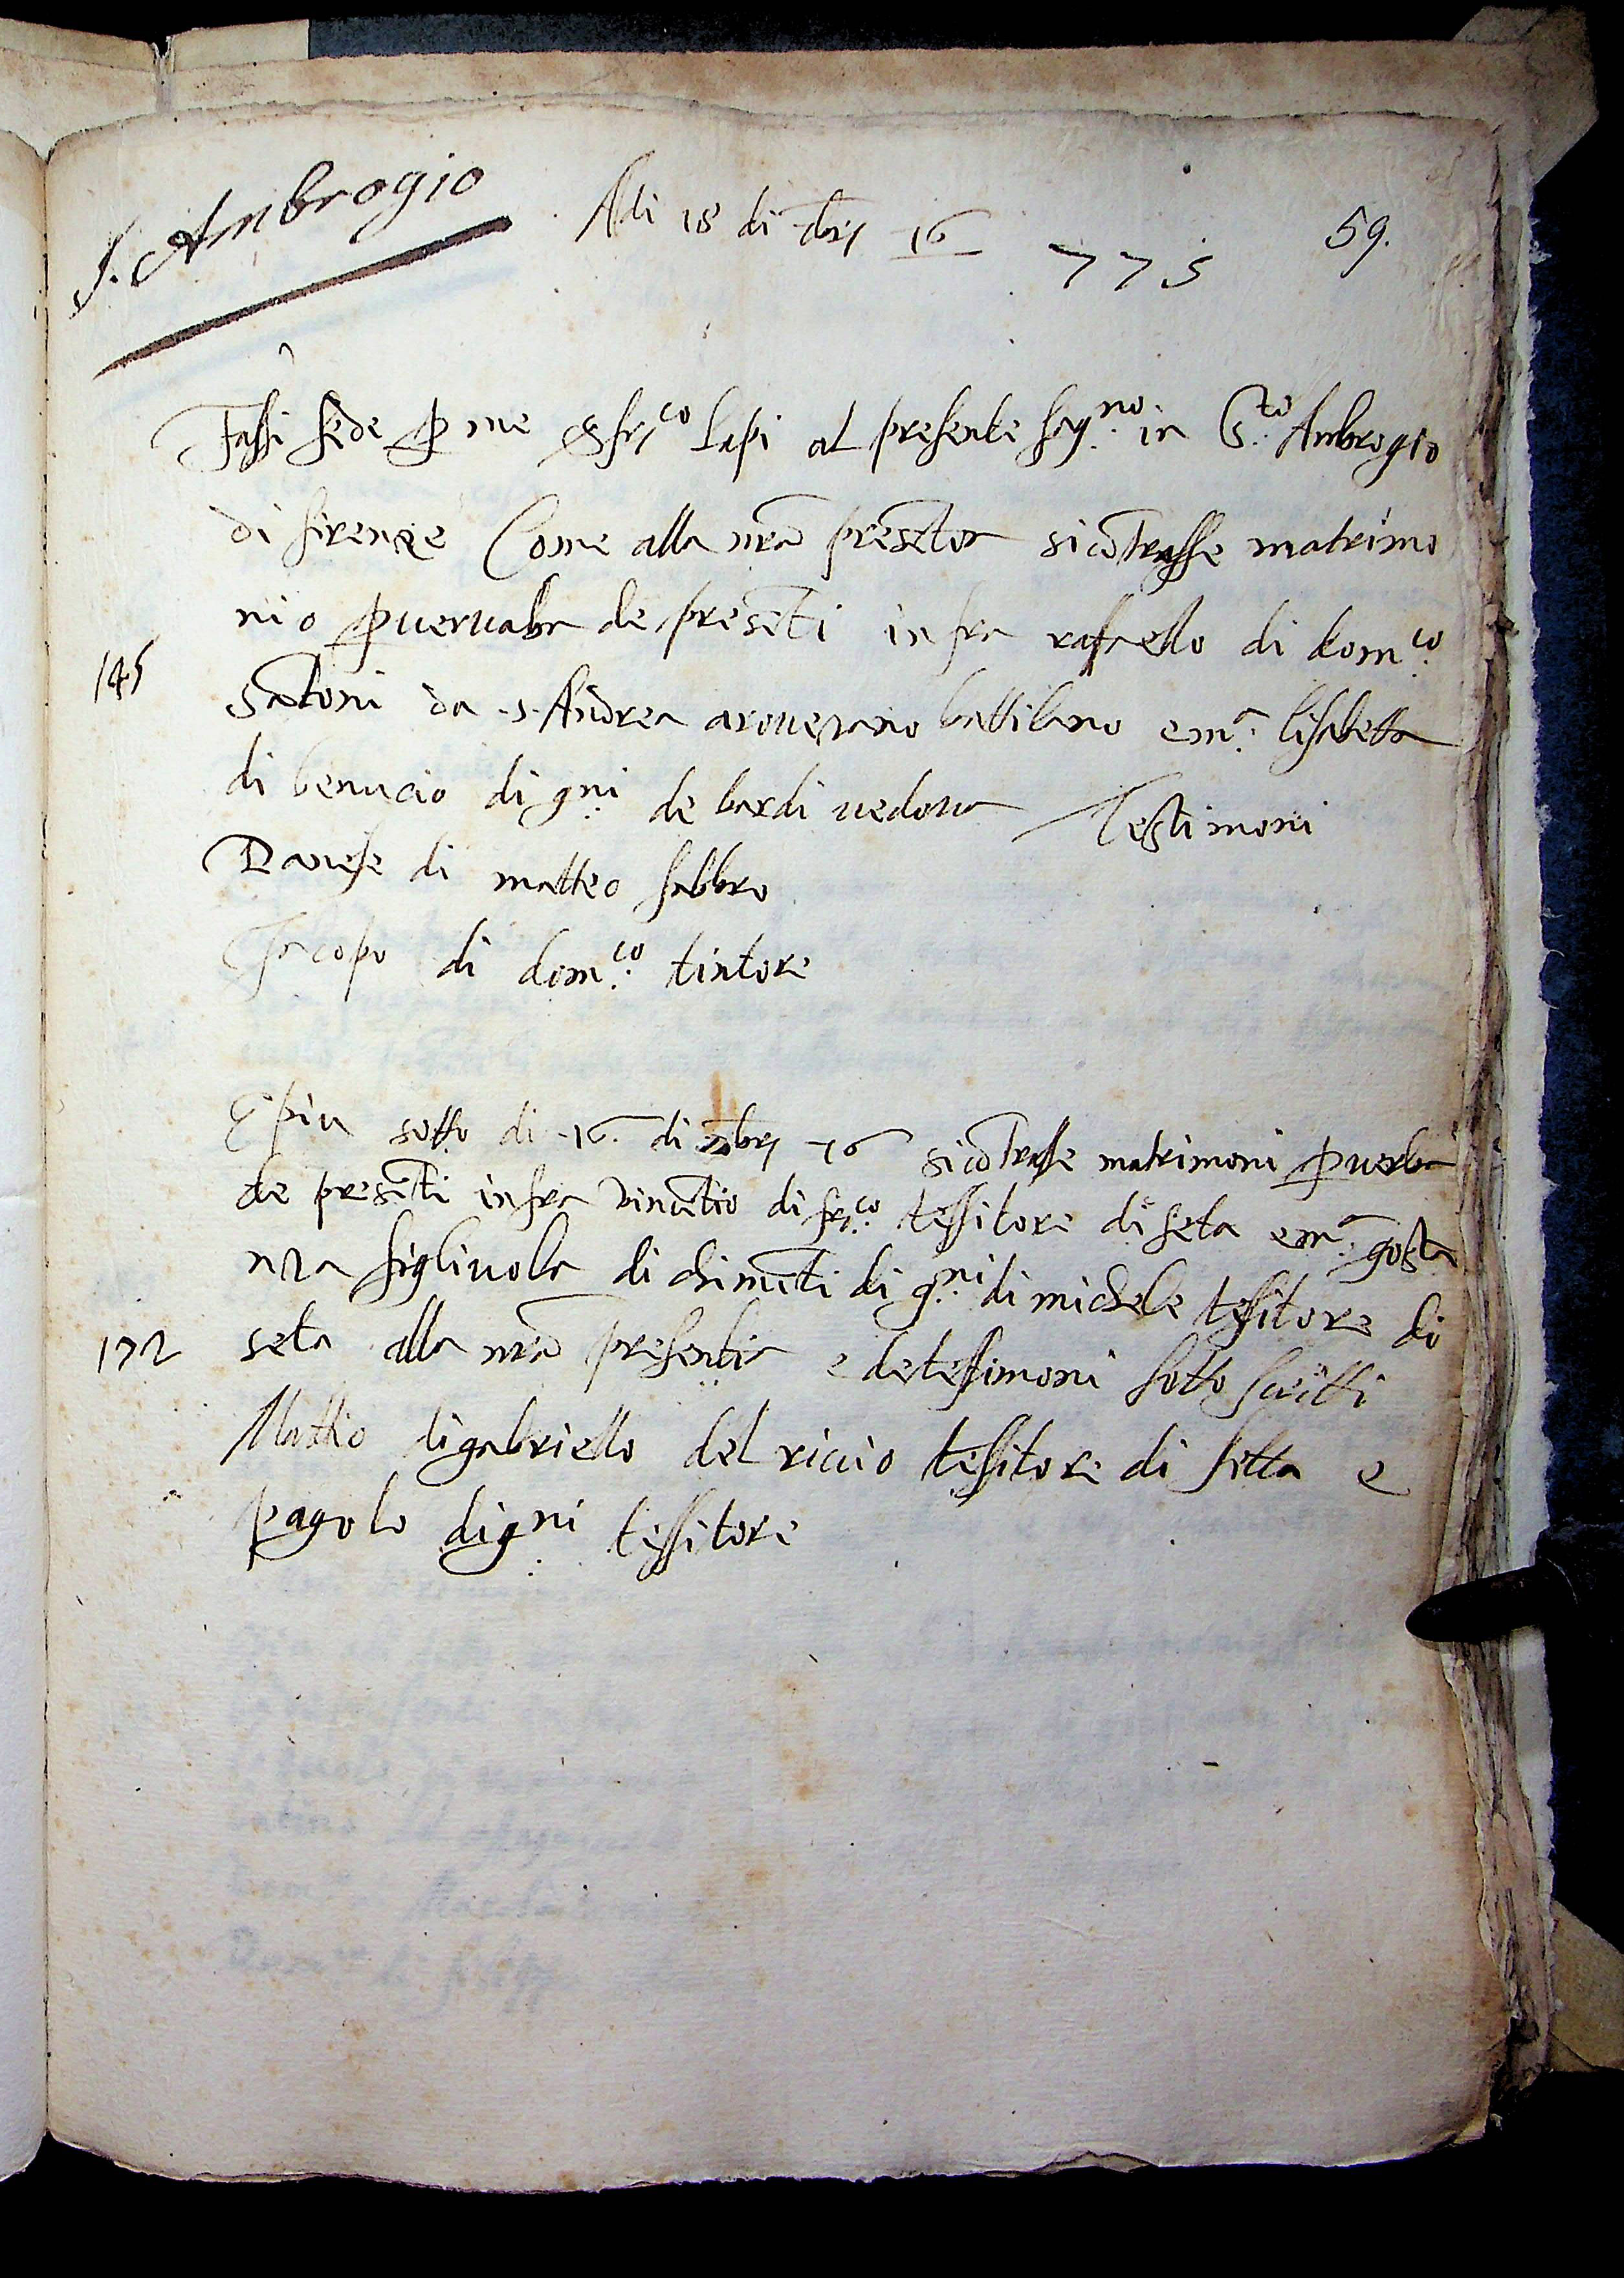 S. Ambrogio
Adi 18 di dbrj 16
775
59.
Fassi fede p me S frco Lapi al presente sagno. in Sto Ambrogio
di firenze Come alla nra presetia si cotrasse matrimo
nio p uerualra de preseti infra raffaello di domco.
145
Satoni da .s. Andrea arouezano battilano e ma. lisabetta
di benucio di gni. de bardi uedoua Testimoni
Dauese di matteo fabbro
Jacopo di domco. tintore
E piu sotto di .16. di xbrj 76 si cotrasse matrimoni p uerba
de preseti infra Vincetio di frco. tessitore di seta e ma. gosta
nza figliuola di chimeti di gni. di michele tessitore di
172
seta alla nra presentia e de tessimoni sotto scritti
Mattio di gabriello del riccio tessitore di setta e
pagolo di gni. tessitore